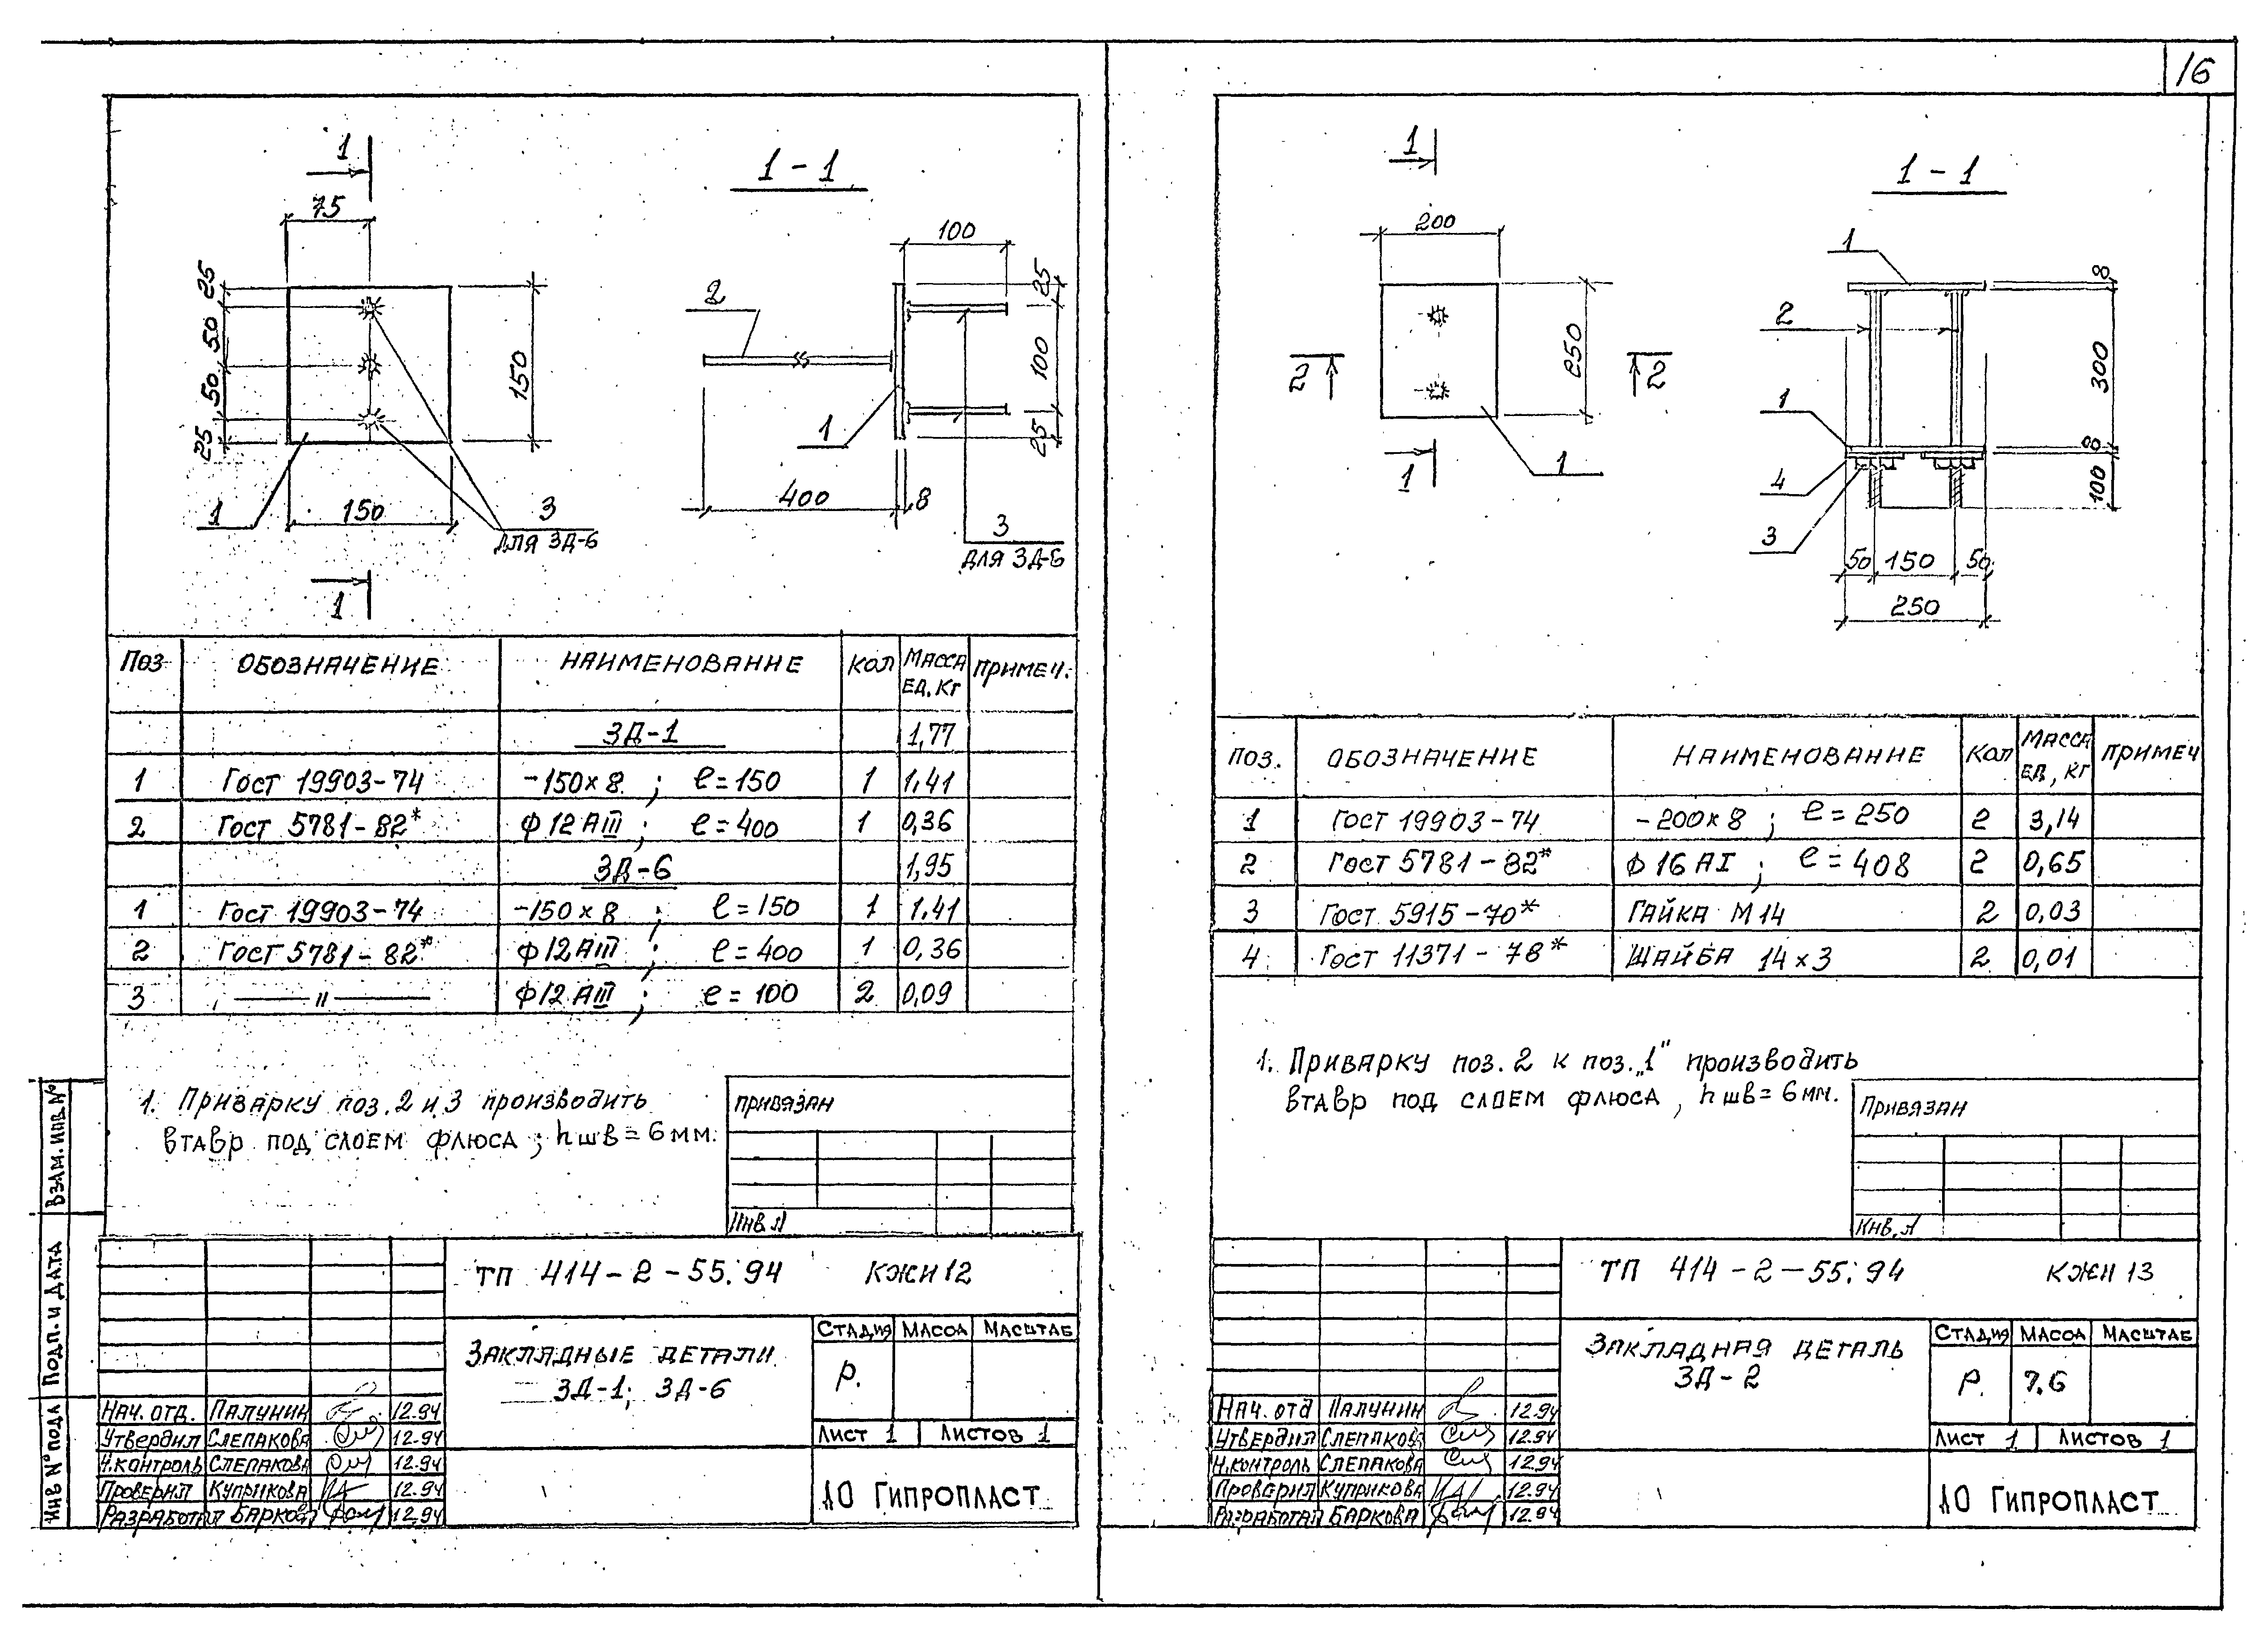 16
1
1 - 1
75
100
25
50
50
25
150
2
25
100
25
1
400
8
1
150
3
для ЗД-6
3
для ЗД-6
1
Поз
Обозначение
Наименование
Кол
Масса ед. кг
Примеч.
ЗД-1
1,77
1 Гост 19903-74 -150×8 ; ℓ=150 1 1,41
2 Гост 5781-82* ф12 АIII ; ℓ=400 1 0,36
ЗД-6 1,95
1 Гост 19903-74 -150×8 ; ℓ=150 1 1,41
2 Гост 5781-82* ф12 АIII ; ℓ=400 1 0,36
3 — " — ф12 АIII ; ℓ=100 2 0,09
1. Приварку поз. 2 и 3 производить
втавр под слоем флюса ; h шв = 6 мм.
Привязан
Инв. №
ТП 414-2-55.94 КЖИ 12
Закладные детали
ЗД-1; ЗД-6
Стадия Масса Масштаб
Р.
Лист 1 Листов 1
АО Гипропласт
Нач. отд. Палунин 12.94
Утвердил Слепакова 12.94
Н.контроль Слепакова 12.94
Проверил Куприкова 12.94
Разработал Баркова 12.94
Взам. инв. №
Подп. и дата
Инв № подл
1
1 - 1
200
250
2
2
1
1
1
8
2
300
1
8
4
100
3
50 150 50
250
Поз.
Обозначение
Наименование
Кол
Масса ед, кг
Примеч
1 Гост 19903-74 -200×8 ; ℓ=250 2 3,14
2 Гост 5781-82* ф16 АI ; ℓ=408 2 0,65
3 Гост 5915-70* Гайка М14 2 0,03
4 Гост 11371-78* Шайба 14×3 2 0,01
1. Приварку поз. 2 к поз. „1" производить
втавр под слоем флюса, h шв = 6 мм.
Привязан
Инв. №
ТП 414-2-55.94 КЖИ 13
Закладная деталь
ЗД-2
Стадия Масса Масштаб
Р. 7.6
Лист 1 Листов 1
АО Гипропласт
Нач. отд Палунин 12.94
Утвердил Слепакова 12.94
Н.контроль Слепакова 12.94
Проверил Куприкова 12.94
Разработал Баркова 12.94